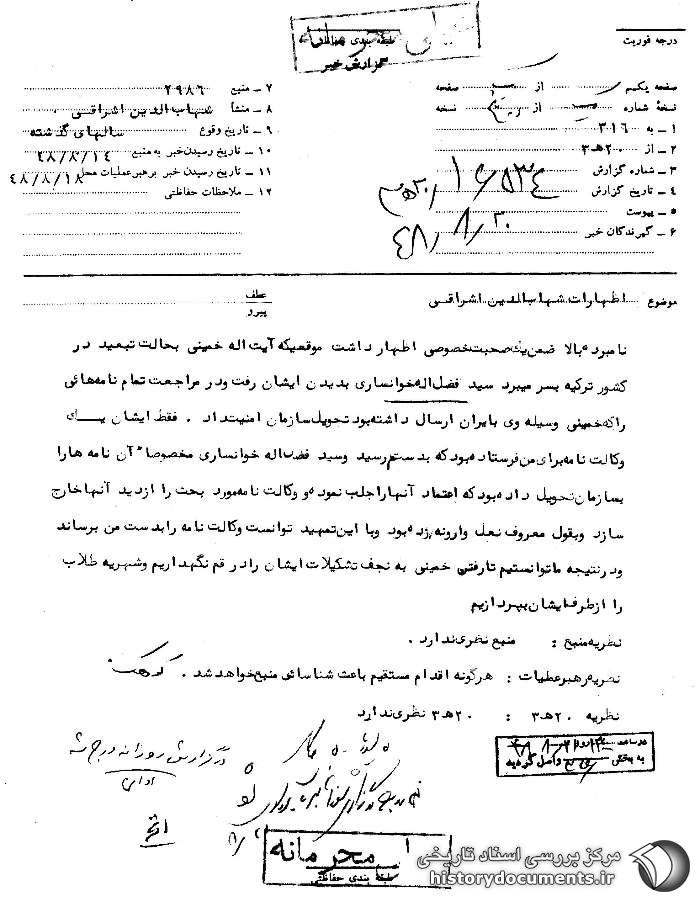 خیلی محرمانه
طبقه بندی حفاظتی
گزارش خبر
درجه فوریت
صفحه یکم از صفحه
نسخهٔ شماره از نسخه
۱ – به ۳۱۶
۲ – از ۲۰ ه‍ ۳
۳ – شماره گزارش
۴ – تاریخ گزارش
۵ – پیوست
۶ – گیرندگان خبر
۴۸/۸/۳۰
۷ – منبع ۲۹۸۶
۸ – منشأ شهاب الدین اشراقی
۹ – تاریخ وقوع سالهای گذشته
۱۰ – تاریخ رسیدن خبر به منبع ۴۸/۸/۱۴
۱۱ – تاریخ رسیدن خبر به رهبر عملیات محل ۴۸/۸/۱۸
۱۲ – ملاحظات حفاظتی
موضوع اظهارات شهاب الدین اشراقی
عطف
پیرو
نامبرده بالا ضمن یک صحبت خصوصی اظهار داشت موقعیکه آیت اله خمینی بحالت تبعید در
کشور ترکیه بسر میبرد سید فضل اله خوانساری بدیدن ایشان رفت ودر مراجعت تمام نامه هائی
را که خمینی وسیله وی بایران ارسال داشته بود تحویل سازمان امنیت داد . فقط ایشان یک
وکالت نامه برای من فرستاده بود که بدستم رسید وسید فضل اله خوانساری مخصوصا" آن نامه هارا
بسازمان تحویل داده بود که اعتماد آنهارا جلب نموده و وکالت نامه مورد بحث را ازدید آنها خارج
سازد وبقول معروف نعل وارونه زده بود وبا این تمهید توانست وکالت نامه را بدست من برساند
ودرنتیجه ما توانستیم تا رفتن خمینی به نجف تشکیلات ایشان را در قم نگهداریم وشهریه طلاب
را از طرف ایشان بپردازیم
نظریه منبع : منبع نظری ندارد .
نظریه رهبر عملیات : هرگونه اقدام مستقیم باعث شناسائی منبع خواهد شد .
نظریه ۲۰ ه‍ ۳ : ۲۰ ه‍ ۳ نظری ندارد
در گزارش روزانه درج شد
در ساعت
به بخش واصل گردید
محرمانه
طبقه بندی حفاظتی
مرکز بررسی اسناد تاریخی
historydocuments.ir